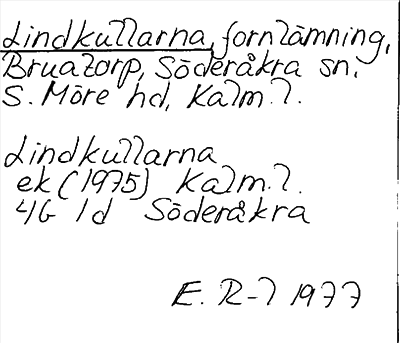 Lindkullarna, fornlämning,
Bruatorp, Söderåkra sn.
S. Möre hd, Kalm. l.
Lindkullarna
ek (1975) Kalm. l.
4G 1d Söderåkra
E. R-l 1977